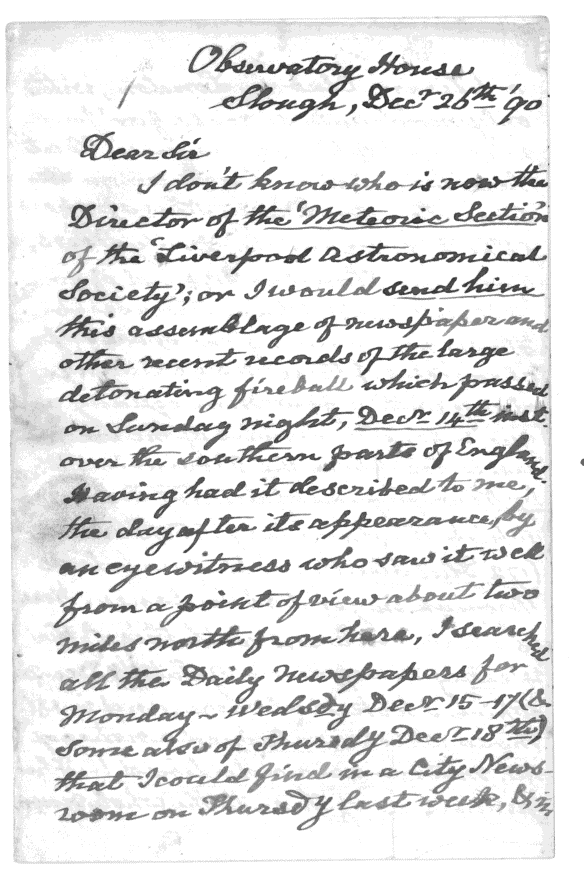 Observatory House
Slough, Decr 26th '90
Dear Sir
I don't know who is now the
Director of the 'Meteoric Section
of the 'Liverpool Astronomical
Society'; or I would send him
this assemblage of newspaper and
other recent records of the large
detonating fireball which passed
on Sunday night, Decr 14th inst.
over the southern parts of England.
Having had it described to me,
the day after its appearance, by
an eyewitness who saw it well
from a point of view about two
miles north from here, I searched
all the Daily Newspapers for
Monday ~ Wedsdy Decr 15-17 (&
some also of Thursdy Decr 18th)
that I could find in a City News-
room on Thursdy last week, & in